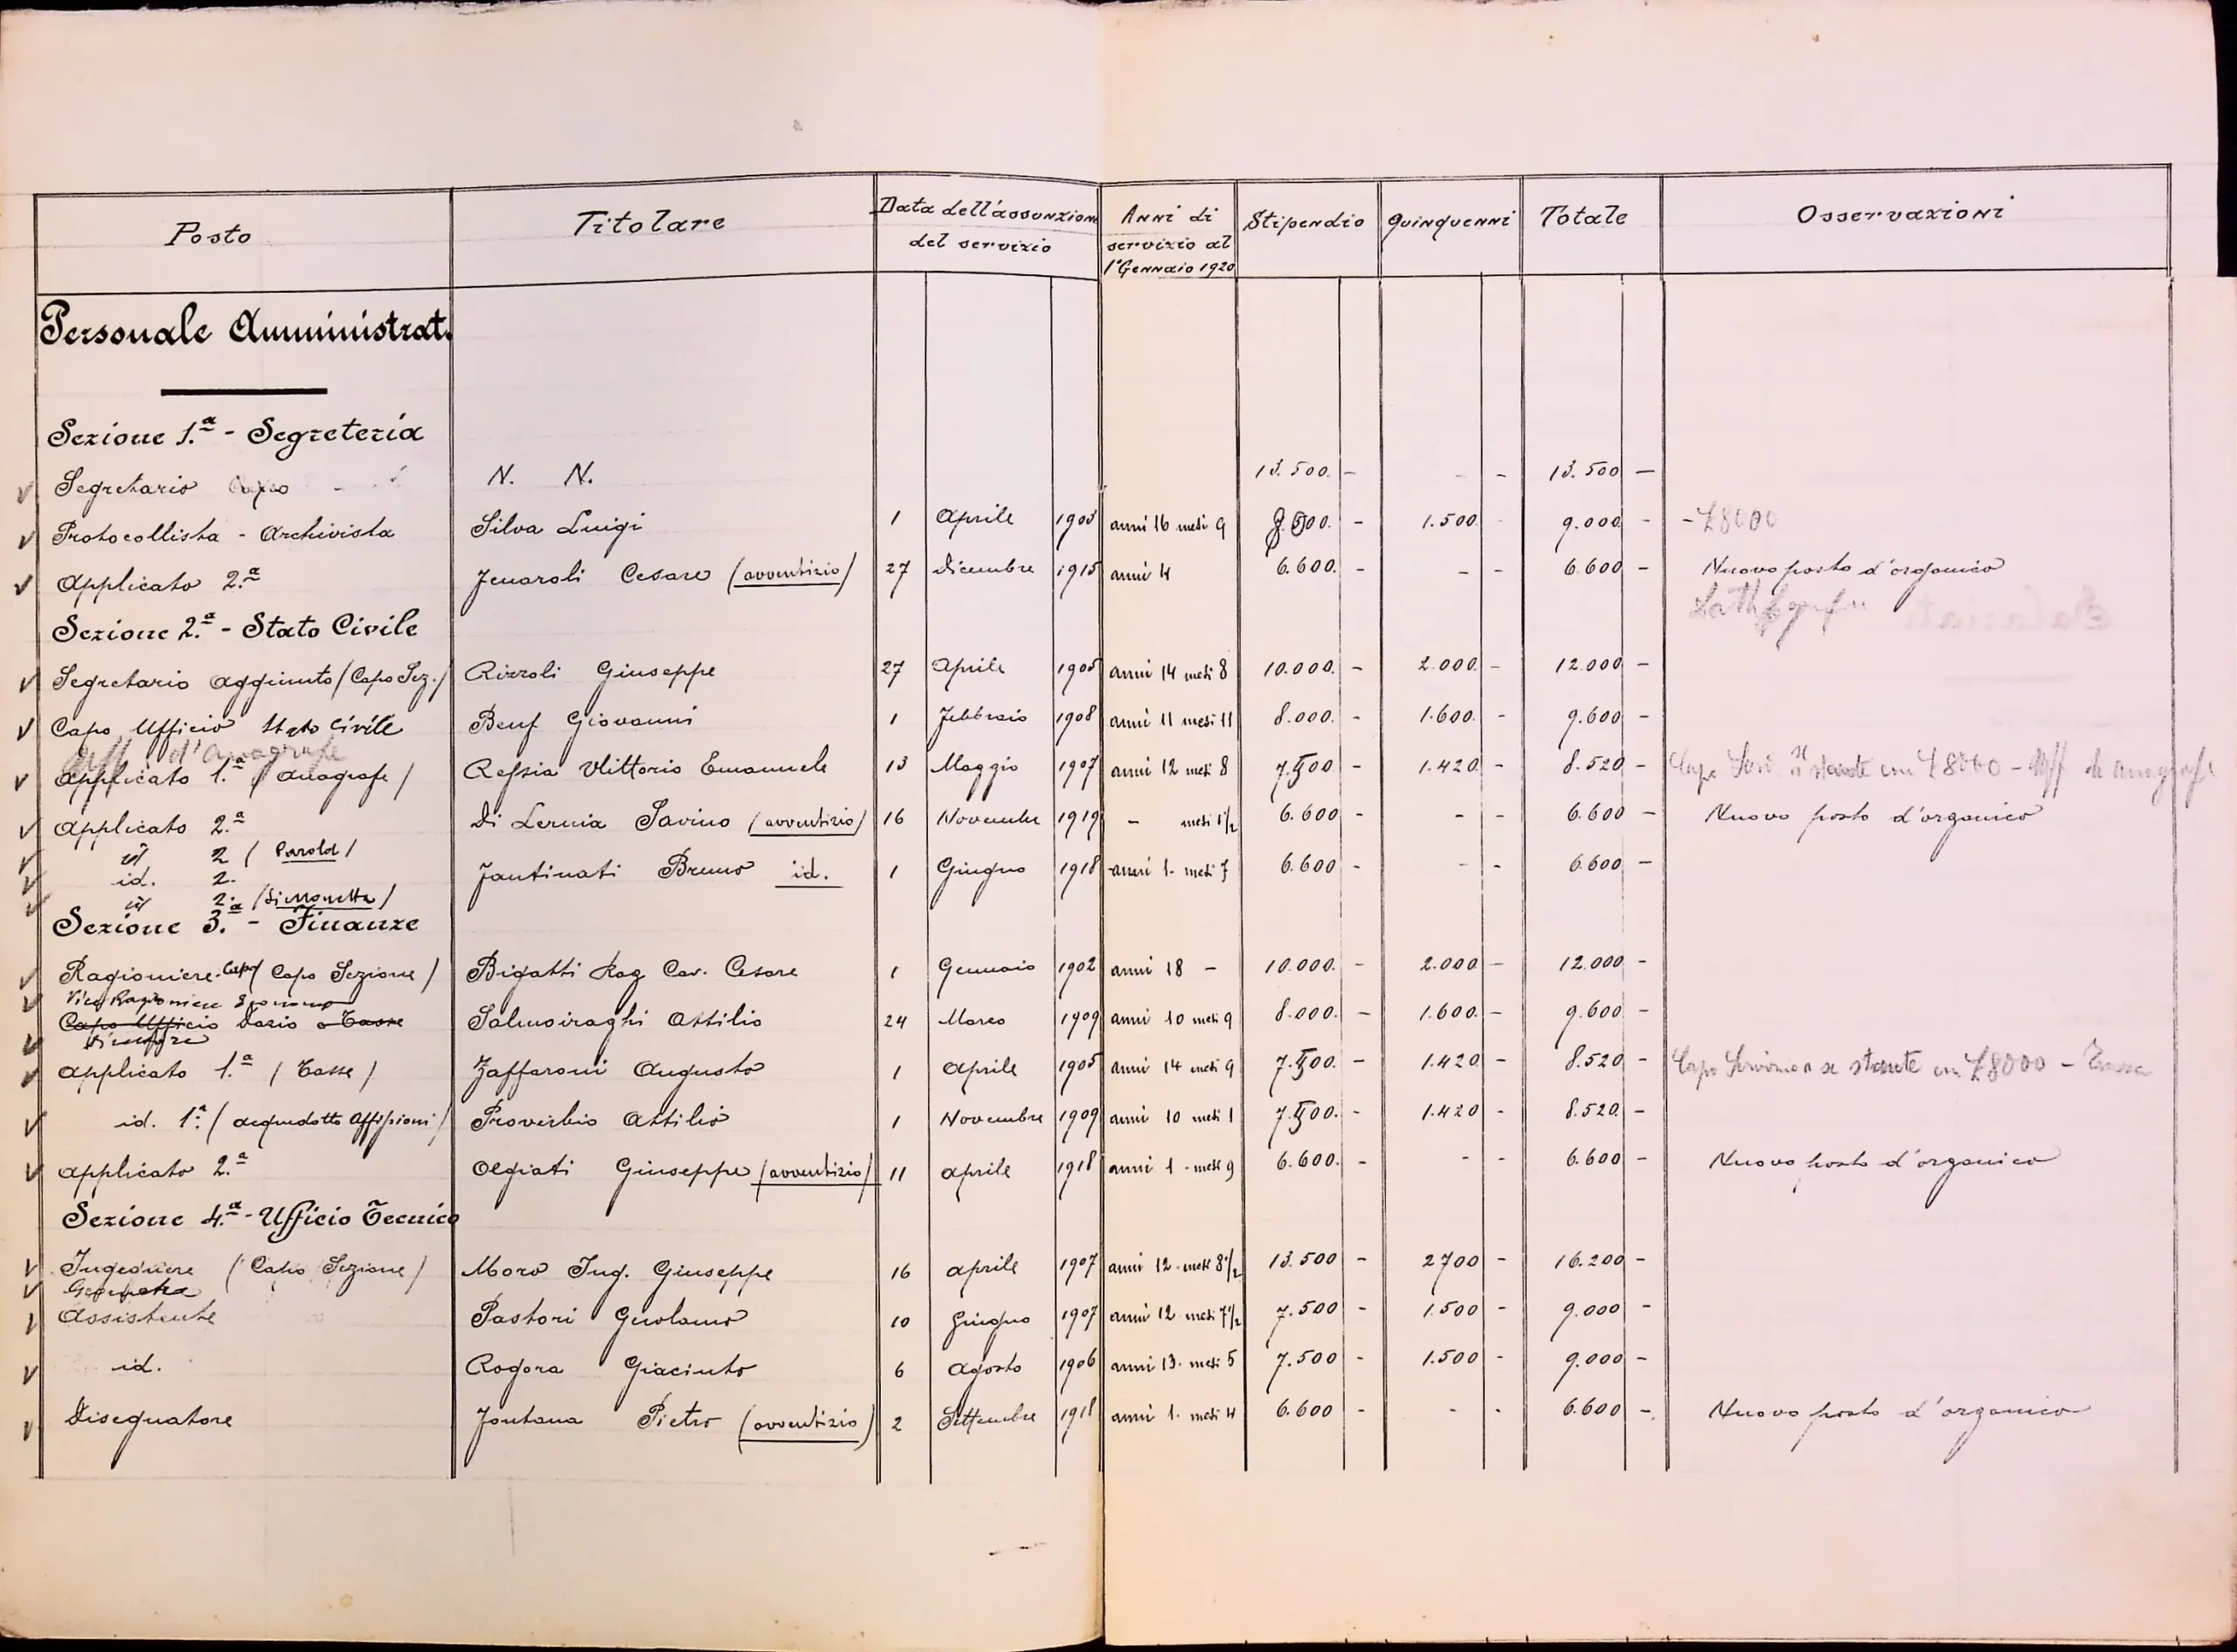 Posto Titolare Data dell'assunzione del servizio Anni di servizio al 1° Gennaio 1920 Stipendio Quinquenni Totale Osservazioni
Personale Amministrat.
Sezione 1.ª - Segreteria
Segretario Capo N. N. 13.500. - - - 13.500 -
Protocollista - Archivista Silva Luigi 1 Aprile 1903 anni 16 mesi 9 500. - 1.500 9.000 - - £8000
Applicato 2.ª Jenaroli Cesare (avventizio) 27 Dicembre 1915 anni 4 6.600. - - - 6.600 - Nuovo posto d'organico
Sezione 2.ª - Stato Civile
Segretario aggiunto (Capo Sez.) Rizzoli Giuseppe 27 Aprile 1905 anni 14 mesi 8 10.000. - 2.000. - 12.000 -
Capo Ufficio Stato Civile Benf Giovanni 1 Febbraio 1908 anni 11 mesi 11 8.000. - 1.600. - 9.600 -
Uff d'Anagrafe
Applicato 1.ª (Anagrafe) Ressia Vittorio Emanuele 13 Maggio 1907 anni 12 mesi 8 7.500 - 1.420 - 8.520 - Capo £8000 - Uff
Applicato 2.ª Di Lernia Savino (avventizio) 16 Novembre 1919 - mesi 1½ 6.600 - - - 6.600 - Nuovo posto d'organico
id 2 (Parola)
id. 2. Fantinati Bruno id. 1 Giugno 1918 anni 1. mesi 7 6.600 - - - 6.600 -
id 2.
Sezione 3.ª - Finanze
Ragioniere-Capo (Capo Sezione) Bigatti Rag Cav. Cesare 1 Gennaio 1902 anni 18 - 10.000. - 2.000 - 12.000 -
Vice Ragioniere Economo
Capo Ufficio Dazio e Tasse Salmoiraghi Attilio 24 Marzo 1909 anni 10 mesi 9 8.000. - 1.600. - 9.600 -
Applicato 1.ª (Tasse) Zaffaroni Augusto 1 Aprile 1905 anni 14 mesi 9 7.500. - 1.420 - 8.520 - Capo £8000 -
id. 1.ª (acquedotto Affissioni) Proverbio Attilio 1 Novembre 1909 anni 10 mesi 1 7.500. - 1.420 - 8.520. -
Applicato 2.ª Olgiati Giuseppe (avventizio) 11 Aprile 1918 anni 1 - mesi 9 6.600. - - - 6.600 - Nuovo posto d'organico
Sezione 4.ª - Ufficio Tecnico
Ingegnere (Capo Sezione) Moro Ing. Giuseppe 16 Aprile 1907 anni 12 - mesi 8½ 13.500 - 2700 - 16.200 -
Geometra
Assistente Pastori Girolamo 10 Giugno 1907 anni 12 mesi 7½ 7.500 - 1.500 - 9.000 -
id. Rogora Giacinto 6 Agosto 1906 anni 13. mesi 5 7.500 - 1.500 - 9.000 -
Disegnatore Fontana Pietro (avventizio) 2 Settembre 1918 anni 1. mesi 4 6.600 - - - 6.600 - Nuovo posto d'organico